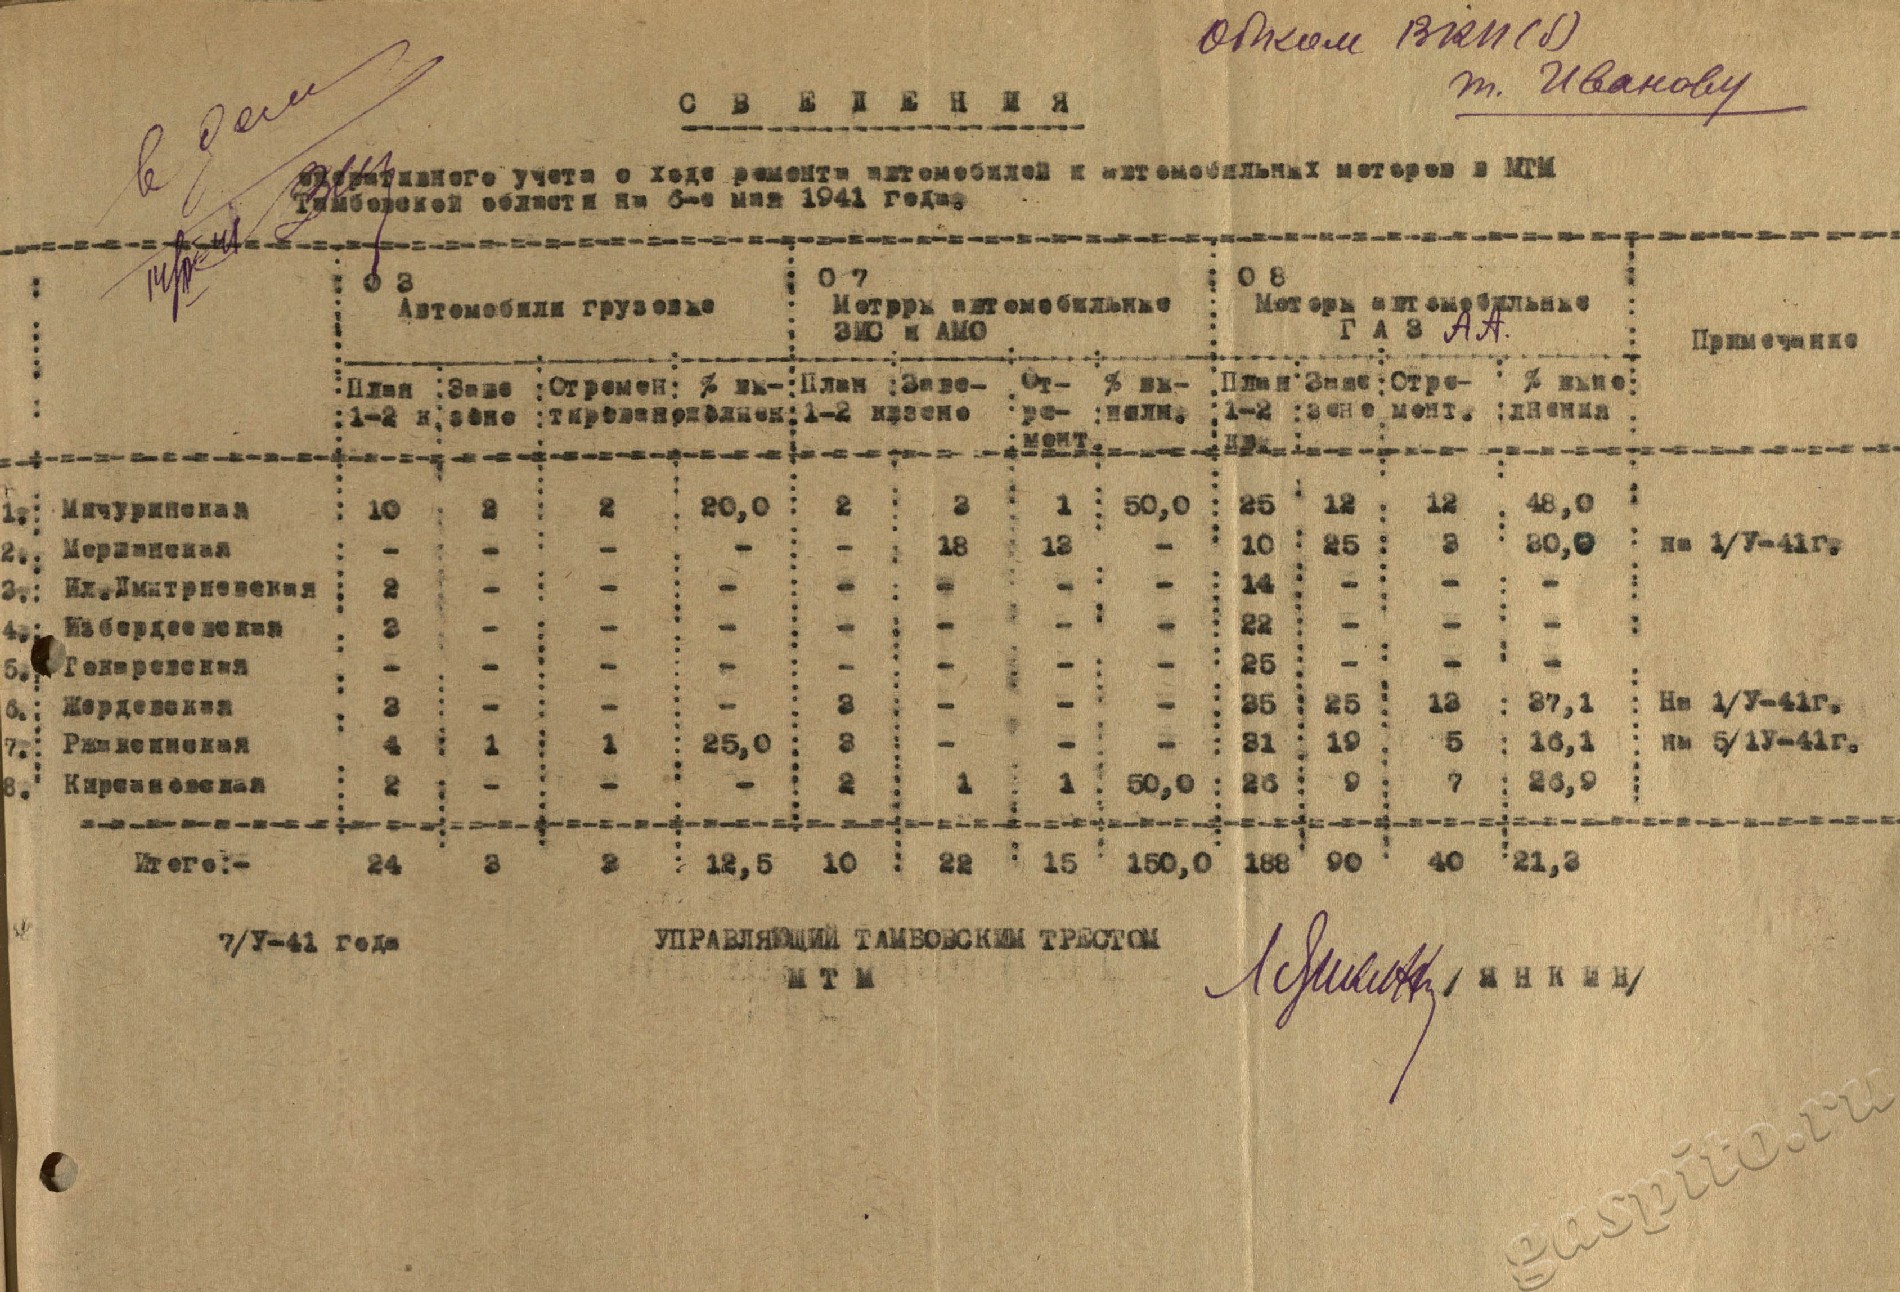 Обком ВКП(б)
т. Иванову
в дело
С В Е Д Е Н И Я
оперативного учета о ходе ремонта автомобилей и автомобильных моторов в МТМ
Тамбовской области на 6-е мая 1941 года.
О 3 О 7 О 8
Автомобили грузовые Мотрры автомобильные Моторы автомобильные
ЗИС и АМО Г А З АА. Примечание
План Заве Отремен % вы- План Заве- От- % вы- План Заве Отре- % выпо
1-2 к. зено тировано полнен 1-2 кв зено ре- полн. 1-2 зено монт. лнения
монт. кв.
1. Мичуринская 10 2 2 20,0 2 3 1 50,0 25 12 12 48,0
2. Моршанская - - - - - 18 13 - 10 25 3 30,0 на 1/У-41г.
3. Ил.Дмитриевская 2 - - - - - - - 14 - - -
4. Избердеевская 3 - - - - - - - 22 - - -
5. Токаревская - - - - - - - - 25 - - -
6. Жердевская 3 - - - 3 - - - 35 25 13 37,1 На 1/У-41г.
7. Ржаксинская 4 1 1 25,0 3 - - - 31 19 5 16,1 на 5/1У-41г.
8. Кирсановская 2 - - - 2 1 1 50,0 26 9 7 26,9
Итого:- 24 3 3 12,5 10 22 15 150,0 188 90 40 21,3
7/У-41 года УПРАВЛЯЮЩИЙ ТАМБОВСКИМ ТРЕСТОМ
М Т М /Я Н К И Н/
gaspito.ru